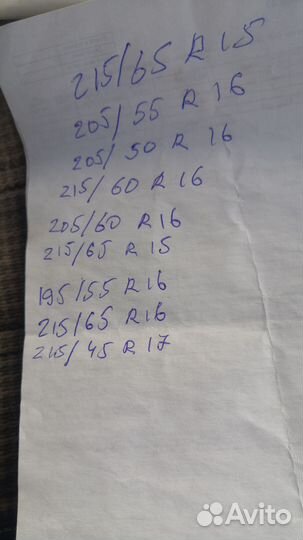 215/65 R 15
205/55 R 16
205/50 R 16
215/60 R 16
205/60 R 16
215/65 R 15
195/55 R16
215/65 R16
215/45 R 17
Avito